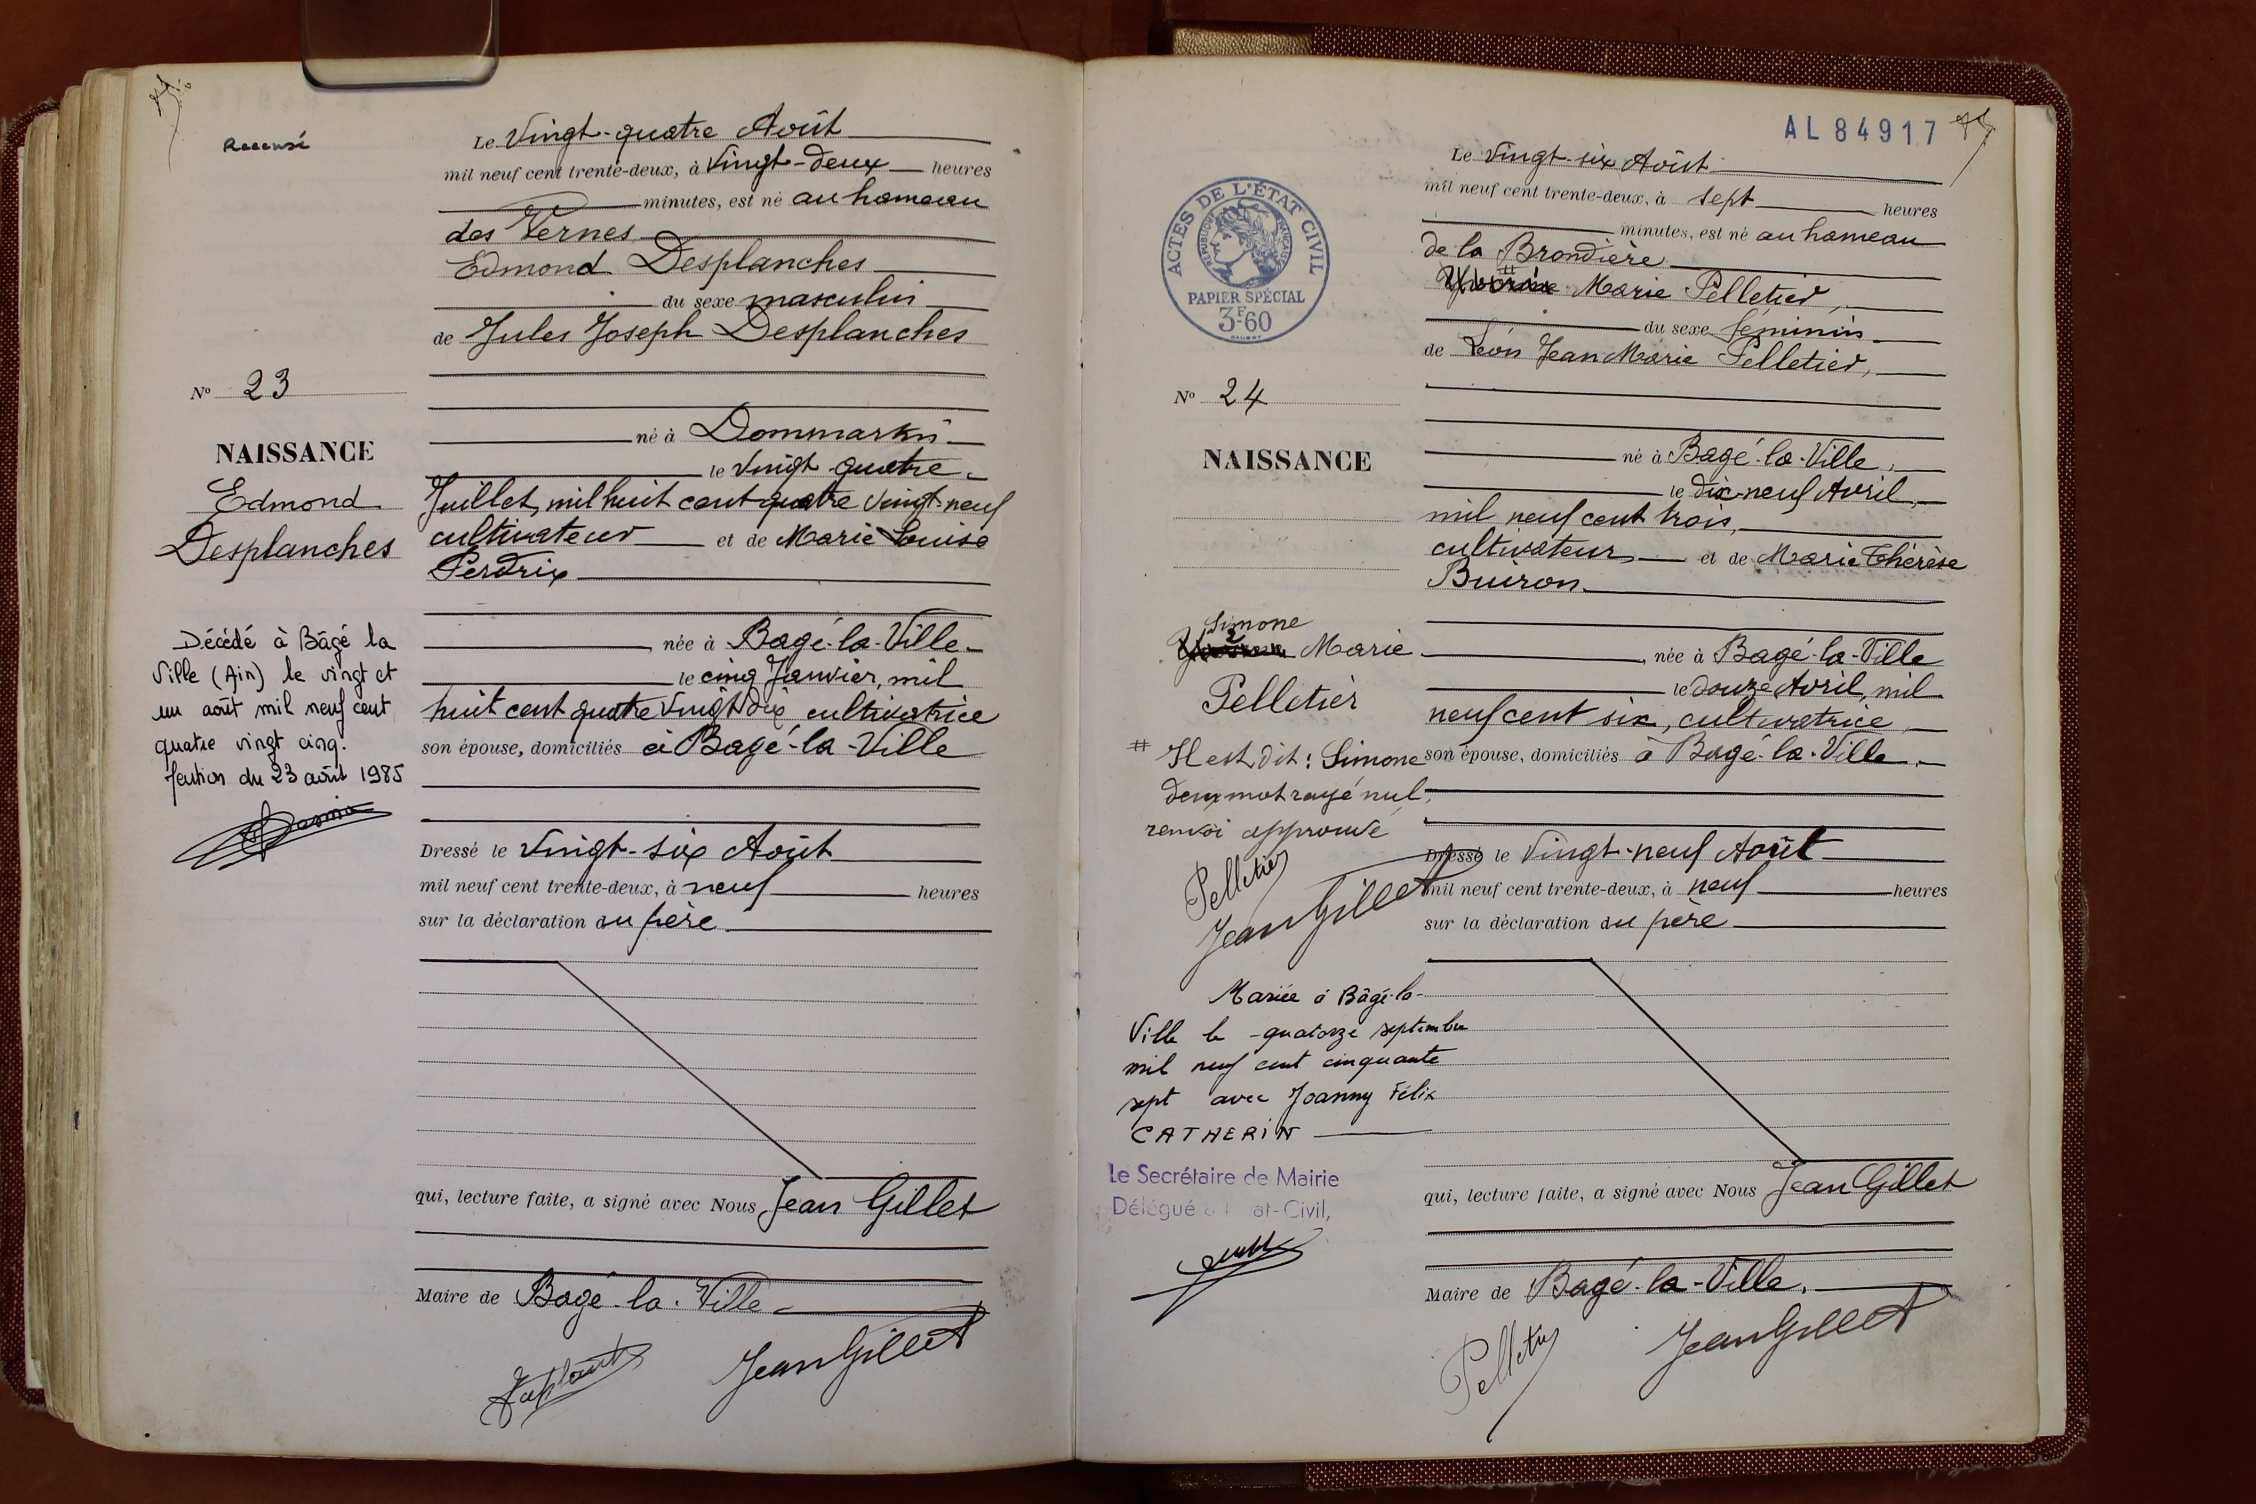 Recensé
Le Vingt-quatre Août
mil neuf cent trente-deux, à Vingt-deux heures
minutes, est né au hameau
des Vernes
Edmond Desplanches
du sexe masculin
de Jules Joseph Desplanches
né à Dommartin
le Vingt quatre
Juillet, mil huit cent quatre vingt-neuf
cultivateur et de Marie Louise
Perdrix
née à Bagé-la-Ville
le cinq Janvier, mil
huit cent quatre Vingt dix, cultivatrice
son épouse, domiciliés à Bagé-la-Ville
Dressé le Vingt-six Août
mil neuf cent trente-deux, à neuf heures
sur la déclaration du père
qui, lecture faite, a signé avec Nous Jean Gillet
Maire de Bagé-la-Ville
Jean Gillet
No 23
NAISSANCE
Edmond
Desplanches
Décédé à Bâgé la
Ville (Ain) le vingt et
un août mil neuf cent
quatre vingt cinq.
Mention du 23 août 1985
AL 84917
ACTES DE L'ÉTAT CIVIL
RÉPUBLIQUE FRANÇAISE
PAPIER SPÉCIAL
3F60
Le Vingt-six Août
mil neuf cent trente-deux, à sept heures
minutes, est né au hameau
de la Brondière
# Marie Pelletier,
du sexe féminin
de Léon Jean Marie Pelletier,
né à Bagé-la-Ville,
le dix-neuf Avril,
mil neuf cent trois,
cultivateur, et de Marie Thérèse
Buiron.
née à Bagé-la-Ville
le douze Avril, mil
neuf cent six, cultivatrice,
son épouse, domiciliés à Bagé-la-Ville.
Dressé le Vingt-neuf Août
mil neuf cent trente-deux, à neuf heures
sur la déclaration du père
qui, lecture faite, a signé avec Nous Jean Gillet
Maire de Bagé-la-Ville.
Pelletier
Jean Gillet
No 24
NAISSANCE
Simone
Marie
Pelletier
# Il est dit : Simone
deux mot rayé nul.
renvoi approuvé
Pelletier
Jean Gillet
Mariée à Bâgé-la-
Ville le quatorze septembre
mil neuf cent cinquante
sept avec Joanny Félix
CATHERIN
Le Secrétaire de Mairie
Délégué at-Civil,